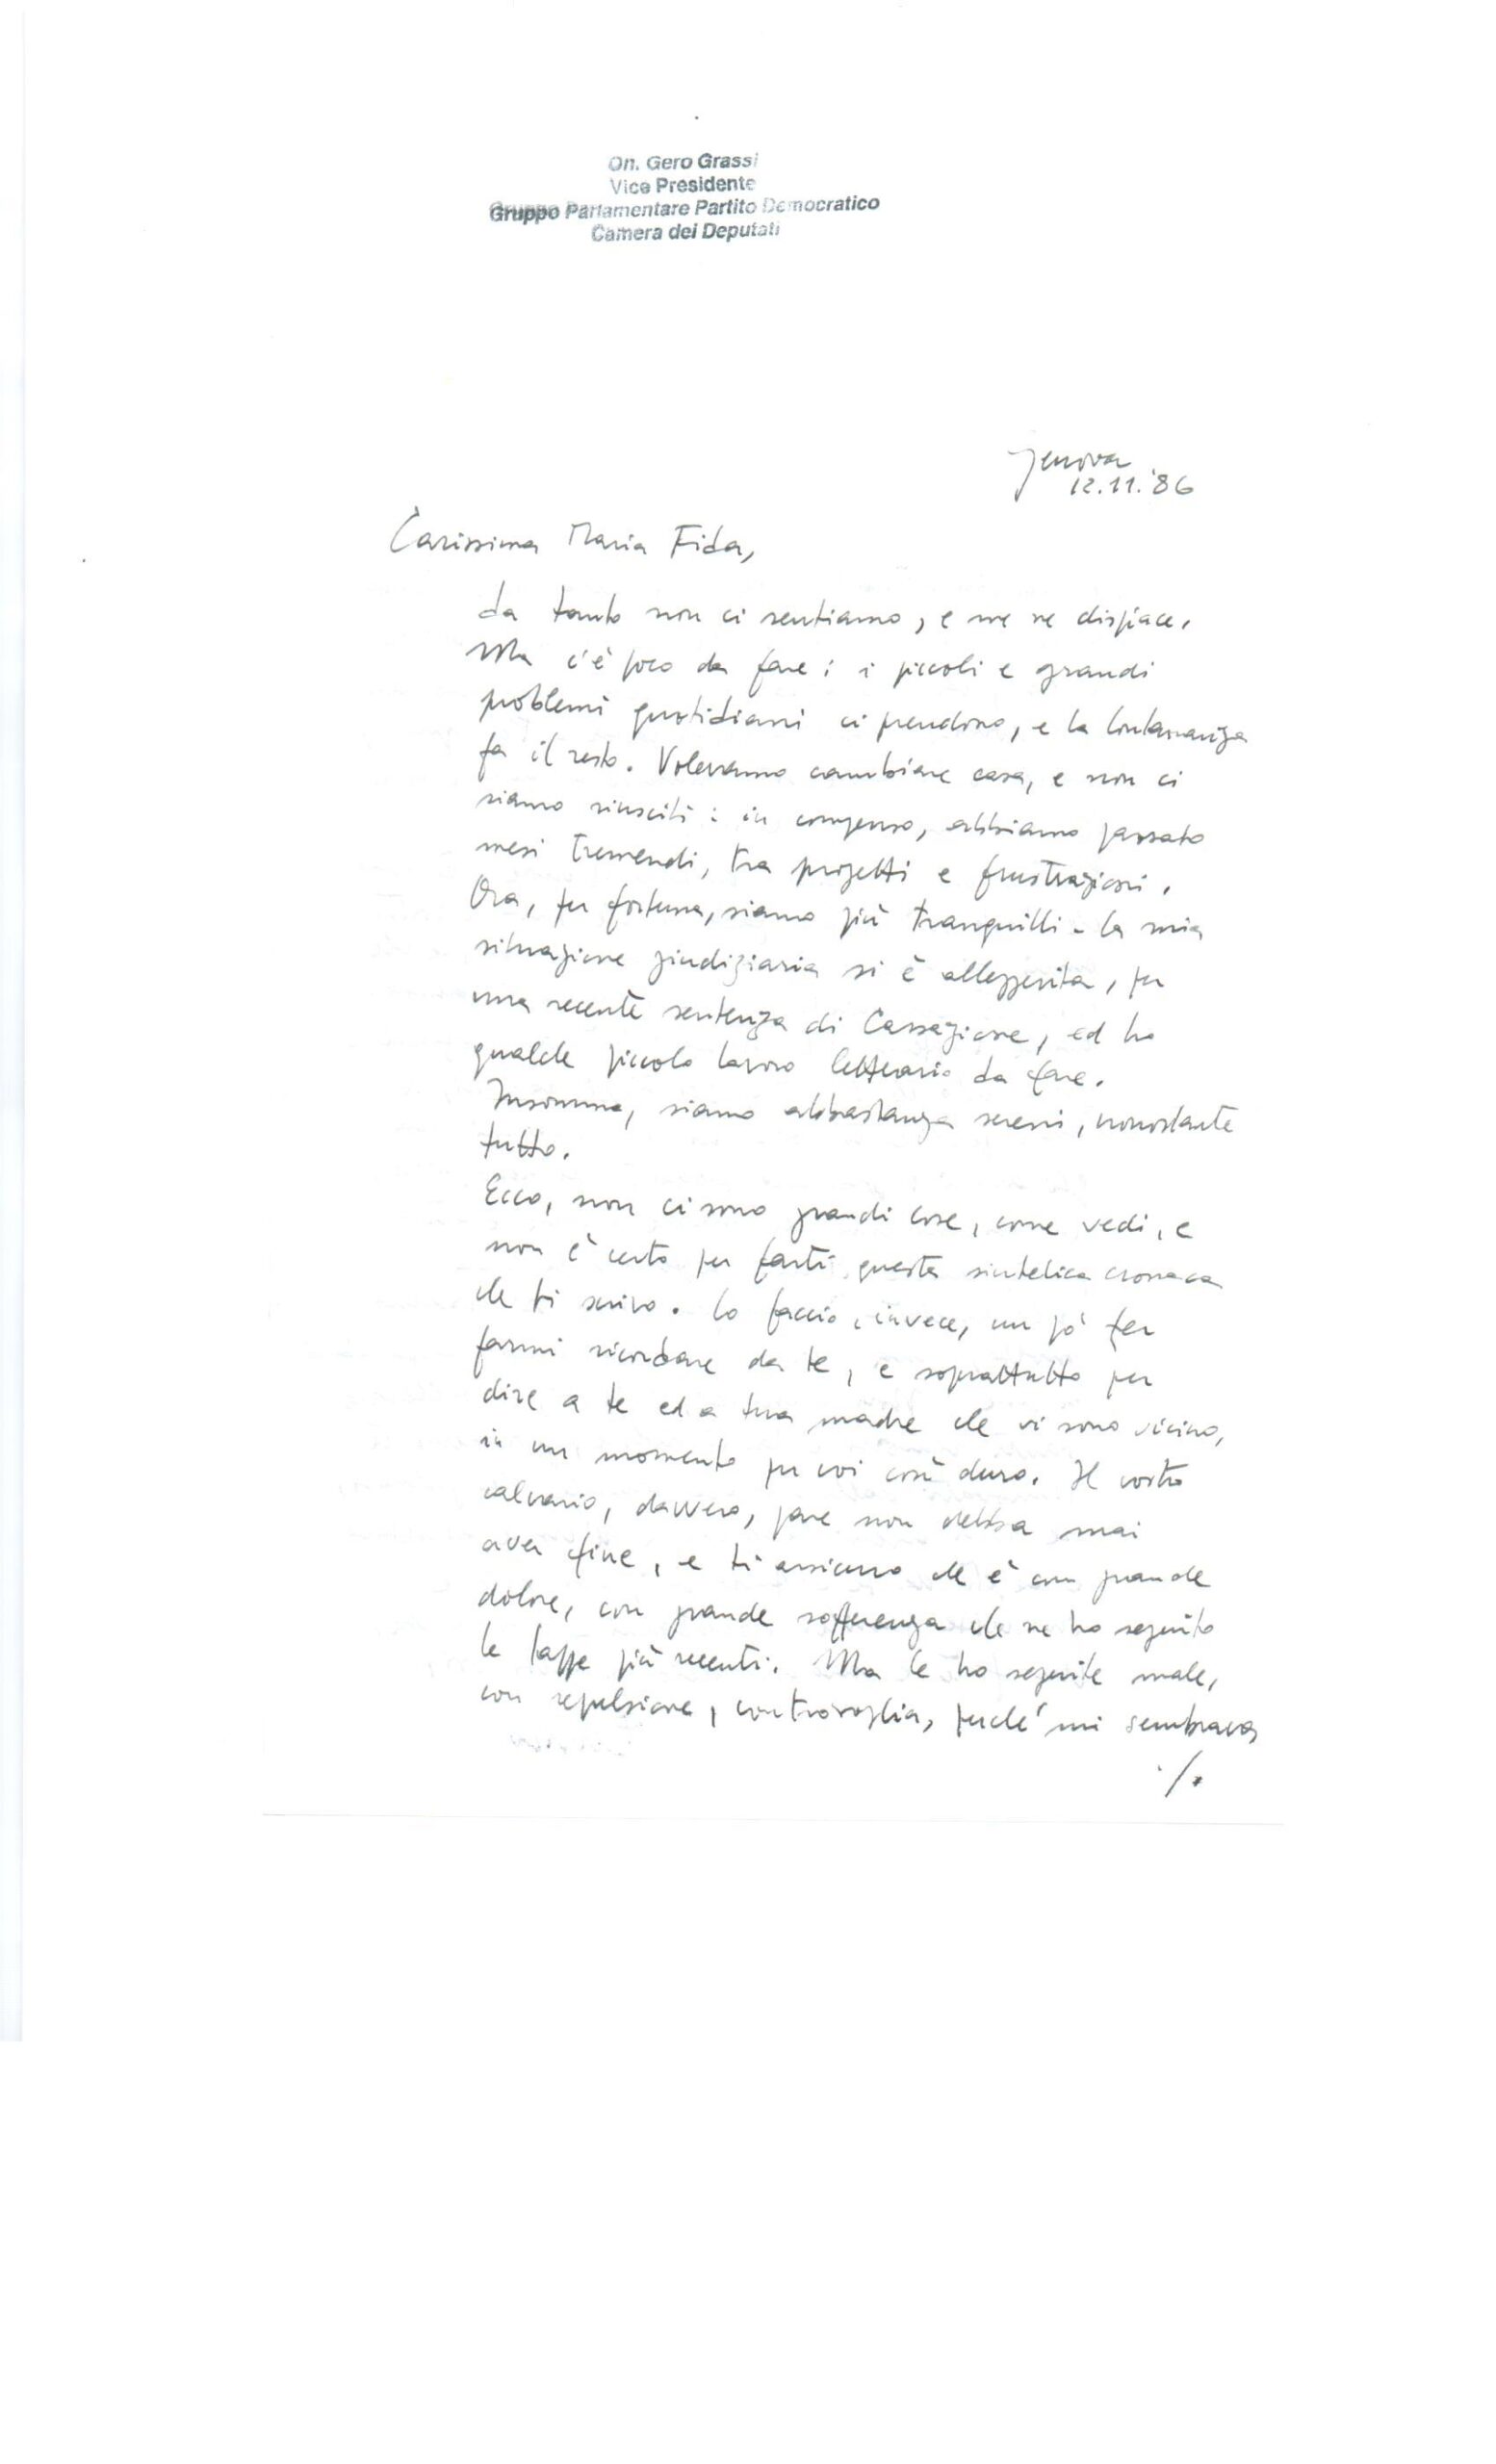 On. Gero Grassi
Vice Presidente
Gruppo Parlamentare Partito Democratico
Camera dei Deputati
Genova
12.11.'86
Carissima Maria Fida,
da tanto non ci sentiamo, e me ne dispiace.
Ma c'è poco da fare: i piccoli e grandi
problemi quotidiani ci prendono, e la lontananza
fa il resto. Volevamo cambiare casa, e non ci
siamo riusciti: in compenso, abbiamo passato
mesi tremendi, tra progetti e frustrazioni.
Ora, per fortuna, siamo più tranquilli - la mia
situazione giudiziaria si è alleggerita, per
una recente sentenza di Cassazione, ed ho
qualche piccolo lavoro letterario da fare.
Insomma, siamo abbastanza sereni, nonostante
tutto.
Ecco, non ci sono grandi cose, come vedi, e
non è certo per farti questa sintetica cronaca
che ti scrivo. Lo faccio, invece, un pò per
farmi ricordare da te, e soprattutto per
dire a te ed a tua madre che vi sono vicino,
in un momento per voi così duro. Il vostro
calvario, davvero, pare non debba mai
aver fine, e ti assicuro che è con grande
dolore, con grande sofferenza che ne ho seguito
le tappe più recenti. Ma le ho seguite male,
con repulsione, controvoglia, perché mi sembrava
./.